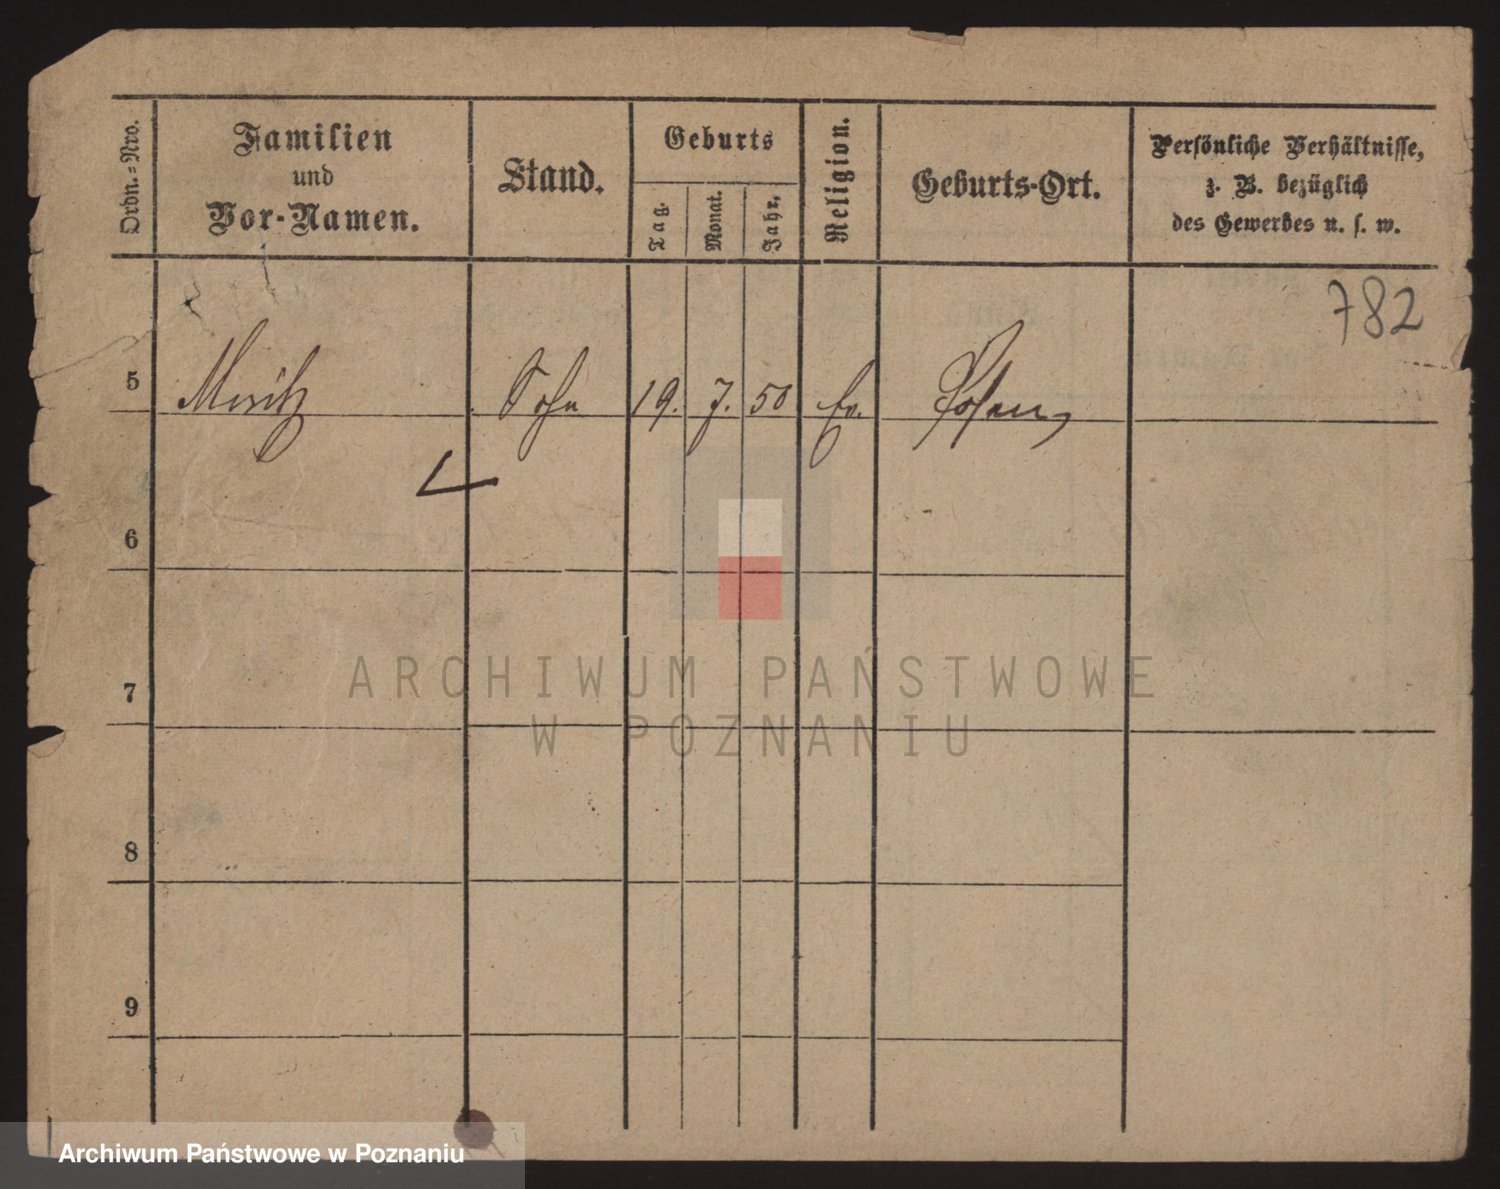 Ordn.-Nro.
Familien
und
Vor-Namen.
Stand.
Geburts
Tag.
Monat.
Jahr.
Religion.
Geburts-Ort.
Persönliche Verhältnisse,
z. B. bezüglich
des Gewerbes u. s. w.
782
5 Moritz Sohn 19. 7. 50 Ev. Posen
6
7
8
9
ARCHIWUM PAŃSTWOWE
W POZNANIU
Archiwum Państwowe w Poznaniu